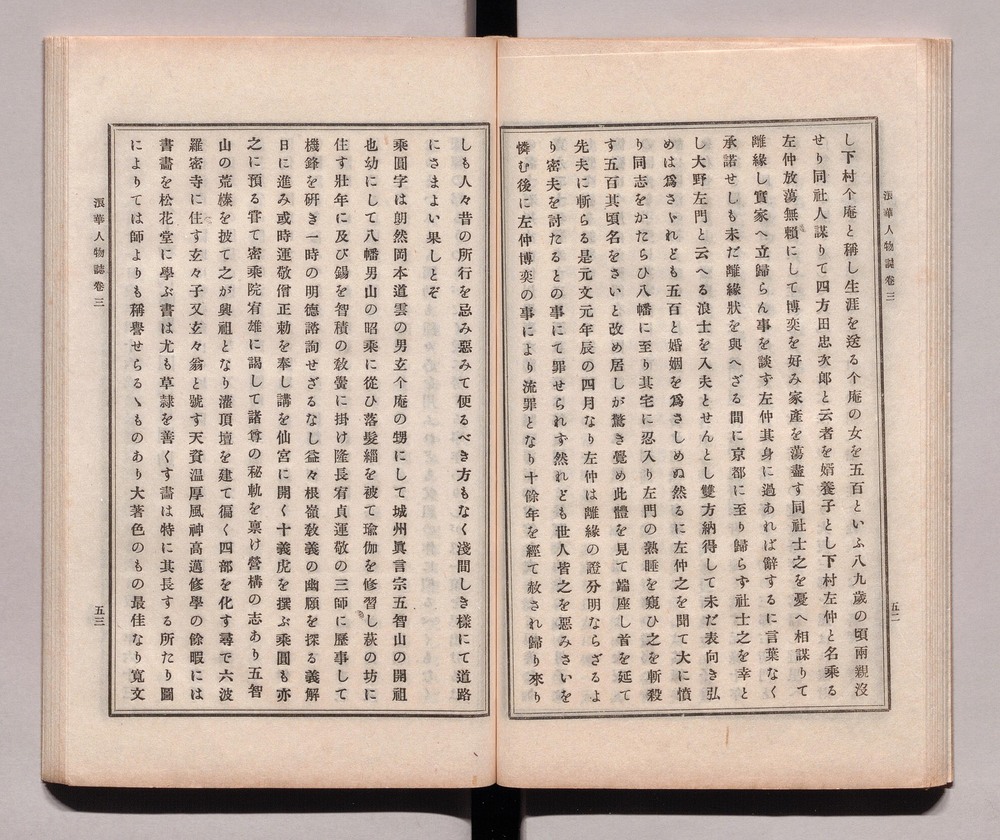 浪華人物誌卷三
五二
し下村个庵と稱し生涯を送る个庵の女を五百といふ八九歳の頃兩親沒
せり同社人謀りて四方田忠次郎と云者を婿養子とし下村左仲と名乘る
左仲放蕩無賴にして博奕を好み家產を蕩盡す同社士之を憂へ相謀りて
離緣し實家へ立歸らん事を談ず左仲其身に過あれば辭するに言葉なく
承諾せしも未だ離緣狀を與へざる間に京都に至り歸らず社士之を幸と
し大野左門と云へる浪士を入夫とせんとし雙方納得して未だ表向き弘
めは爲さゞれども五百と婚姻を爲さしめぬ然るに左仲之を聞て大に憤
り同志をかたらひ八幡に至り其宅に忍入り左門の熟睡を窺ひ之を斬殺
す五百其頃名をさいと改め居しが驚き覺め此體を見て端座し首を延て
先夫に斬らる是元文元年辰の四月なり左仲は離緣の證分明ならざるよ
り密夫を討たるとの事にて罪せられず然れども世人皆之を惡みさいを
憐む後に左仲博奕の事により流罪となり十餘年を經て赦され歸り來り
しも人々昔の所行を忌み惡みて便るべき方もなく淺間しき樣にて道路
にさまよい果しとぞ
乘圓字は朗然岡本道雲の男玄个庵の甥にして城州眞言宗五智山の開祖
也幼にして八幡男山の昭乘に從ひ落髮緇を被て瑜伽を修習し萩の坊に
住す壯年に及び錫を智積の敎黌に掛け隆長宥貞運敬の三師に歷事して
機鋒を硏き一時の明德諮詢せざるなし益々根嶺敎義の幽願を探る義解
日に進み或時運敬僧正勅を奉し講を仙宮に開く十義虎を撰ぶ乘圓も亦
之に預る甞て密乘院宥雄に謁して諸尊の秘軌を禀け營構の志あり五智
山の荒榛を披て之が興祖となり灌頂壇を建て徧く四部を化す尋で六波
羅密寺に住す玄々子又玄々翁と號す天資溫厚風神高邁修學の餘暇には
書畵を松花堂に學ぶ書は尤も草隷を善くす畵は特に其長する所たり圖
によりては師よりも稱譽せらるゝものあり大著色のもの最佳なり寬文
浪華人物誌卷三
五三